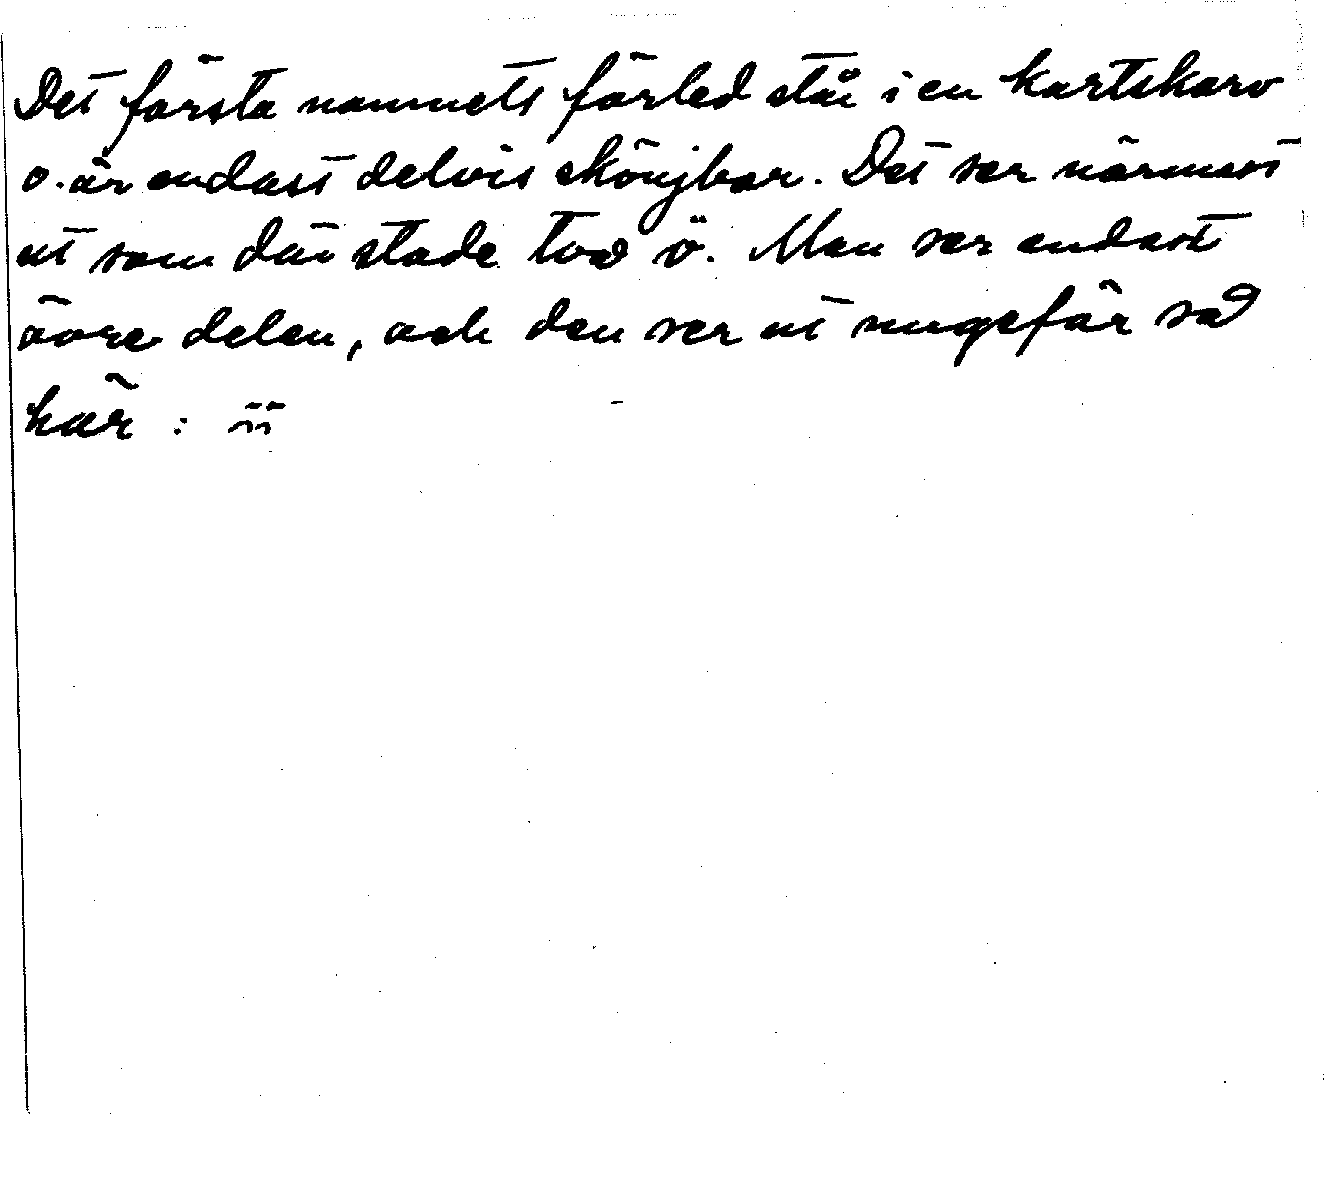 Det första namnets förled står i en kartskarv
o. är endast delvis skönjbar. Det ser närmast
ut som där stode två ö. Man ser endast
övre delen, och den ser ut ungefär så
här : öö